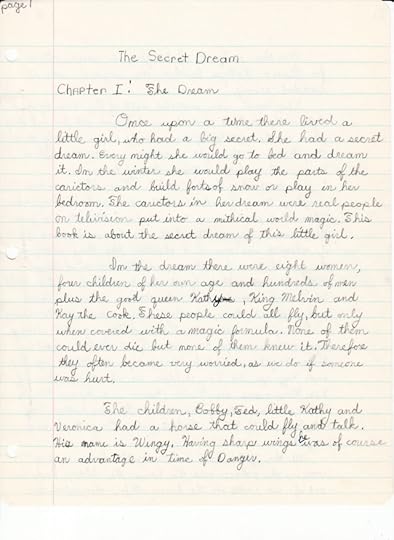 page 1
The Secret Dream
Chapter I: The Dream
Once upon a time there lived a
little girl, who had a big secret. She had a secret
dream. Every night she would go to bed and dream
it. In the winter she would play the parts of the
carictors and build forts of snow or play in her
bedroom. The carictors in her dream were real people
on television put into a mithical world magic. This
book is about the secret dream of this little girl.
In the dream there were eight women,
four children of her own age and hundreds of men
plus the good queen Kathy, King Melvin and
Kay the Cook. These people could all fly, but only
when covered with a magic formula. None of them
could ever die but none of them knew it. Therefore
they often became very worried, as we do if someone
was hurt.
The children, Bobby, Ted, little Kathy and
Veronica had a horse that could fly and talk.
His name is Wingy. Having sharp wings he was of course
an advantage in time of Danger.